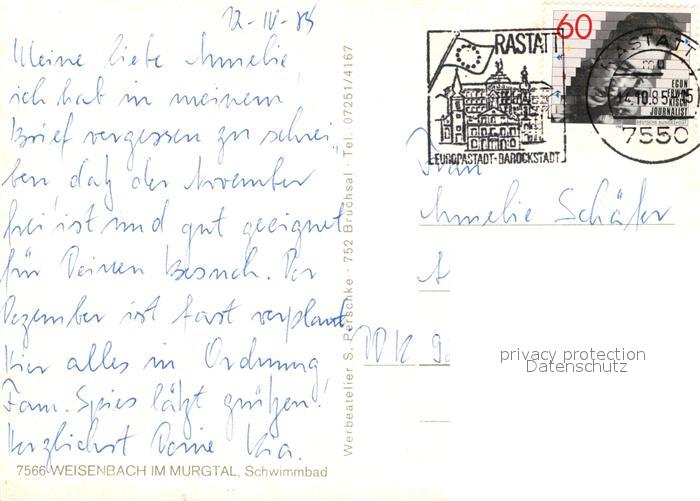 12-IV-85
Meine liebe Amelie,
ich hab in meinem
Brief vergessen zu schrei
ben, daß der November
frei ist und gut geeignet
für Deinen Besuch. Der
Dezember ist fast verplant
Hier alles in Ordnung
Fam. Spies läßt grüßen!
Herzlichst Deine
7566 WEISENBACH IM MURGTAL, Schwimmbad
Werbeatelier S. Perschke · 752 Bruchsal · Tel. 07251/4167
RASTATT
EUROPASTADT-BAROCKSTADT
60
RASTATT
mu
14.10.85-15
7550
EGON
ERWIN
KISCH
JOURNALIST
DEUTSCHE BUNDESPOST
Frau
Amelie Schäfer
A
privacy protection
Datenschutz